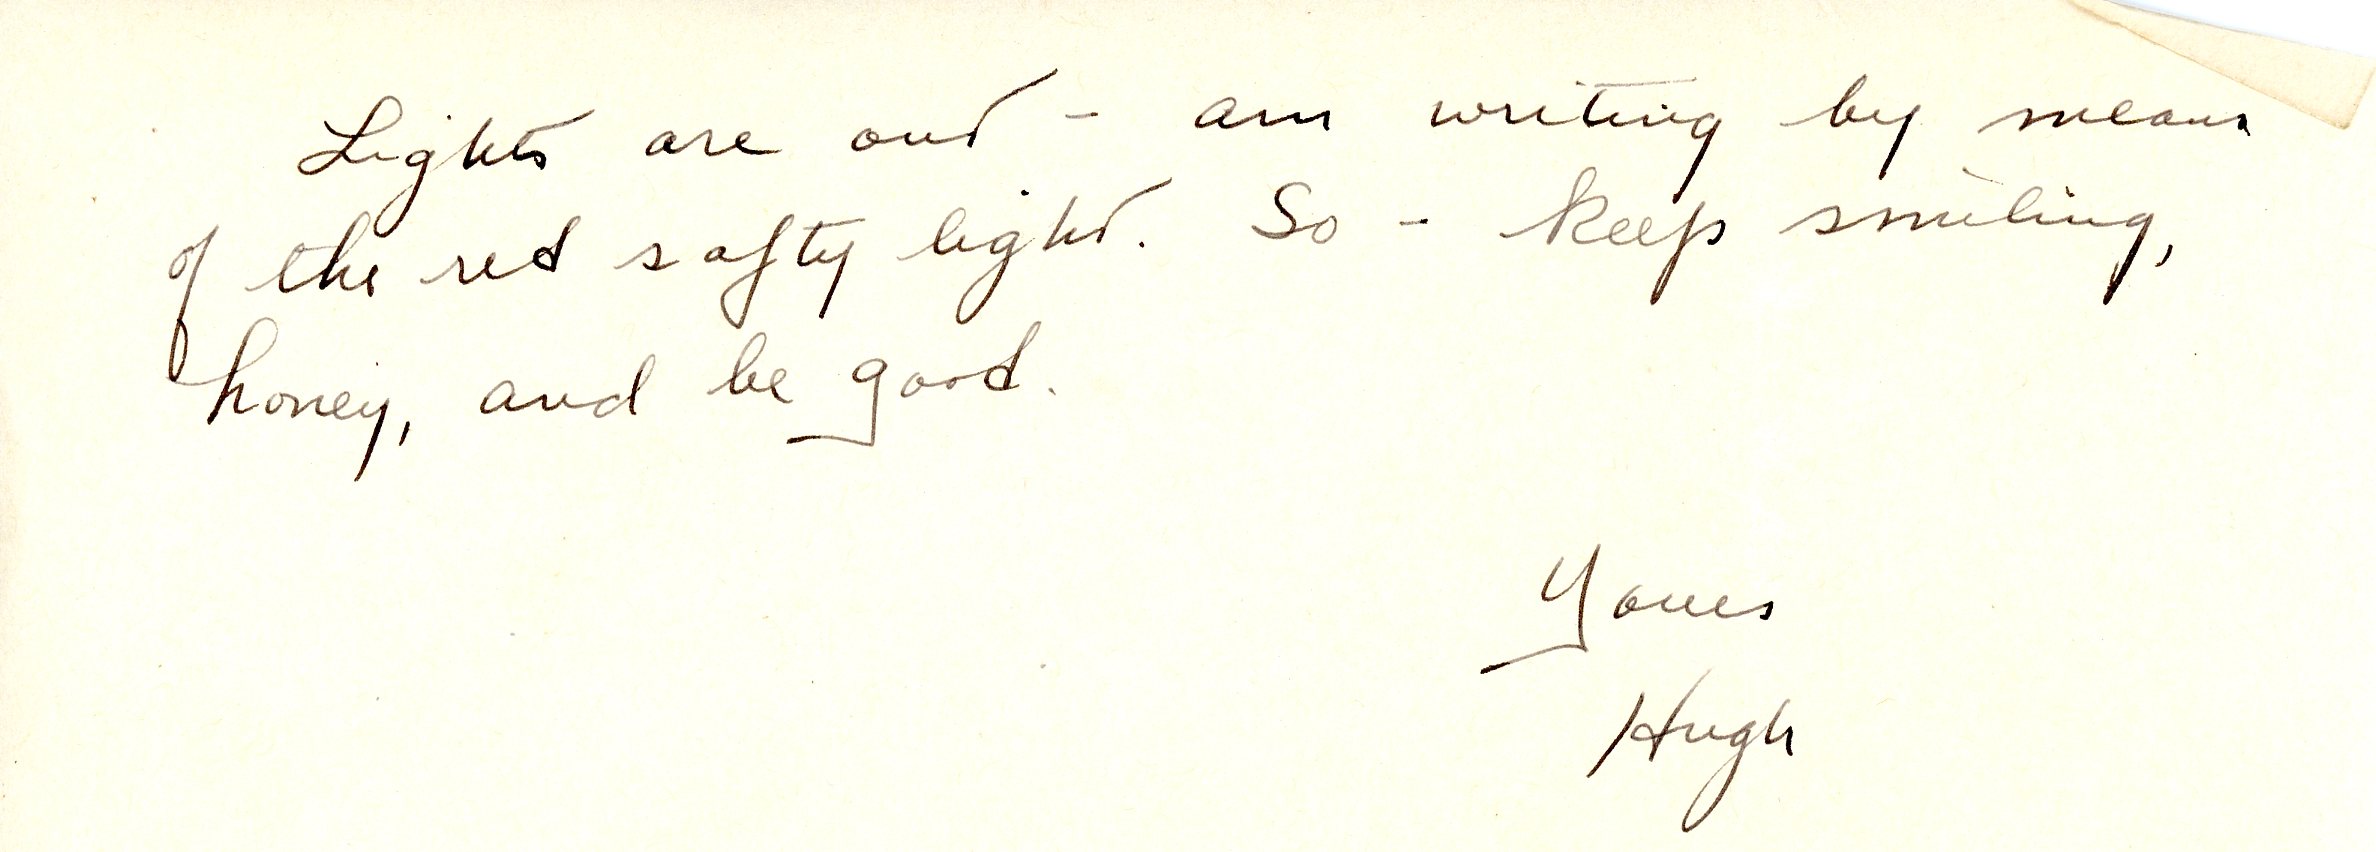 Lights are out - am writing by means
of the red safty light. So - keep smiling,
honey, and be good.
Yours
Hugh